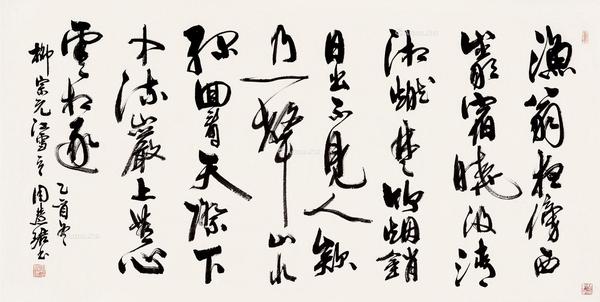 漁翁夜傍西
巖宿曉汲清
湘燃楚竹烟銷
日出不見人欸
乃一聲山水
綠回看天際下
中流巖上無心
雲相逐
柳宗元江雪
乙酉冬
周慧珺书